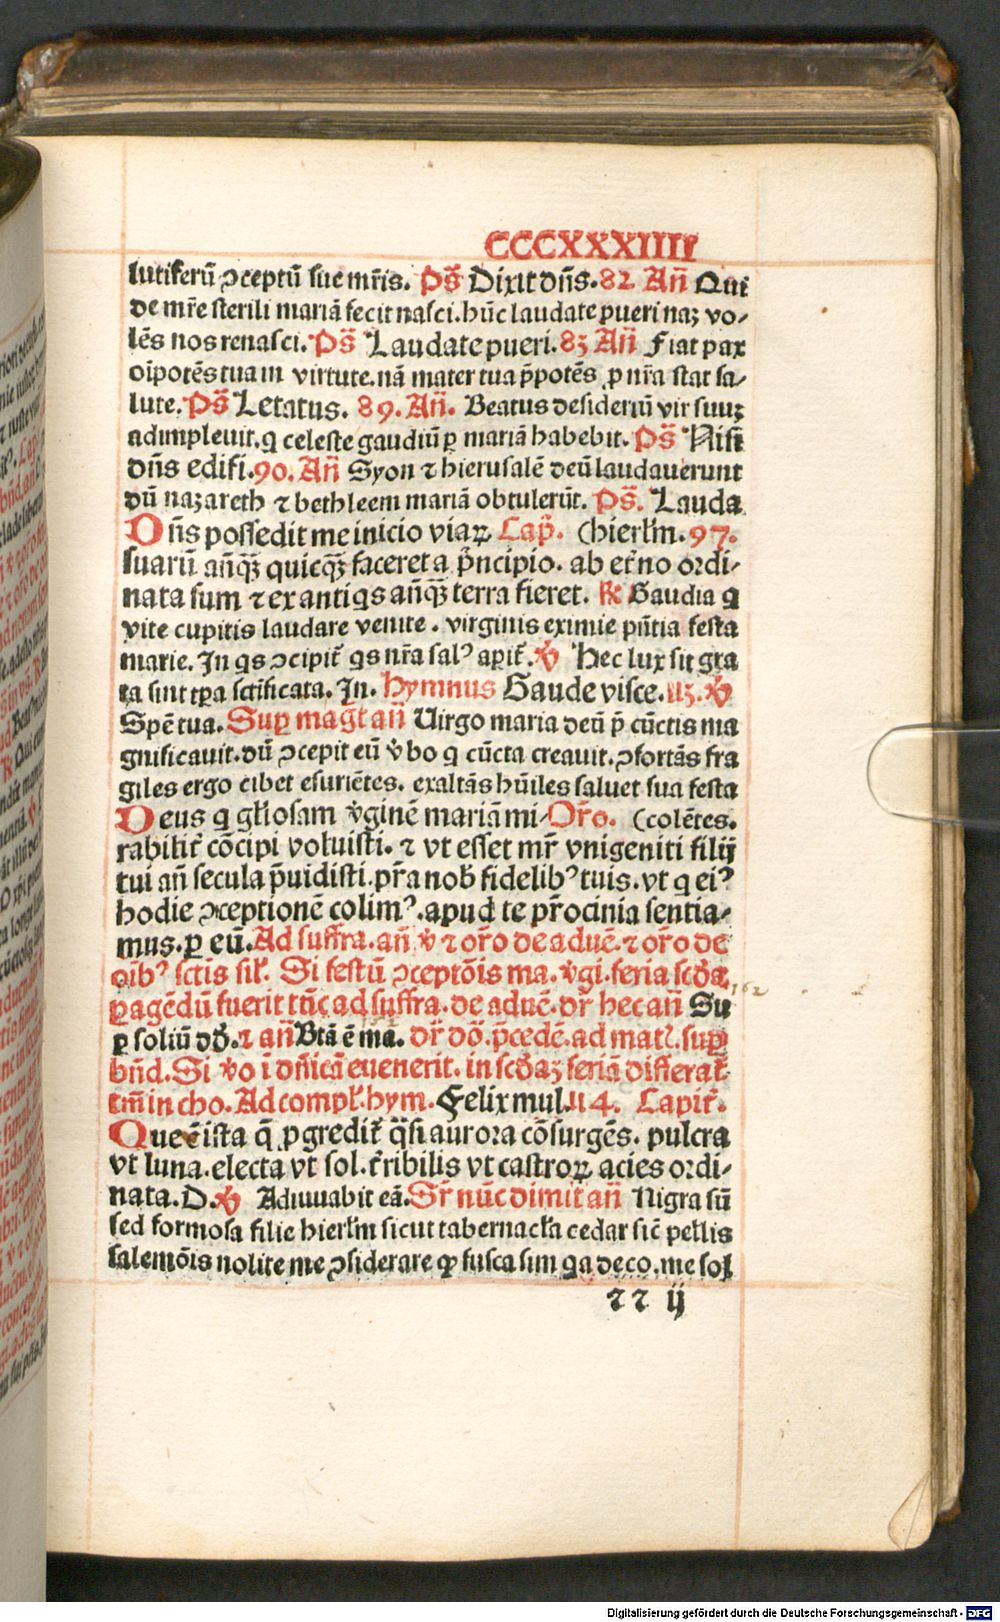 CCCXXXIIII
lutiferū ꝯceptū sue mr̄is. Ps̄ Dixit dn̄s. 82 An̄ Qui
de mr̄e sterili mariā fecit nasci. hūc laudate pueri naꝫ vo-
lēs nos renasci. Ps̄ Laudate pueri. 83 An̄ Fiat pax
oīpotēs tua in virtute. nā mater tua p̄potēs ꝓ nr̄a stat sa-
lute. Ps̄ Letatus. 89. An̄. Beatus desideriū vir suuꝫ
adimpleuit. q celeste gaudiū ꝑ mariā habebit. Ps̄ Nisi
dn̄s edifi. 90. An̄ Syon ⁊ hierusalē deū laudauerunt
dū nazareth ⁊ bethleem mariā obtulerūt. Ps̄. Lauda
Dn̄s possedit me inicio viaꝝ Cap̄. (hierl̄m. 97.
suarū an̄qꝫ quicqꝫ faceret a p̄ncipio. ab et̄no ordi-
nata sum ⁊ ex antiqs an̄qꝫ terra fieret. ℟ Gaudia q
vite cupitis laudare venite. virginis eximie pn̄tia festa
marie. In qs ꝯcipit̄ qs nr̄a salꝰ aꝑit̄. ℣ Hec lux sit gra
ta sint tꝑa sct̄ificata. In. Hymnus Gaude visce. 113. ℣
Spē tua. Suꝑ maḡt an̄ Uirgo maria deū p̄ cūctis ma
gnificauit. dū ꝯcepit eū v̄bo q cūcta creauit. ꝯfortās fra
giles ergo cibet esuriētes. exaltās hūiles saluet sua festa
Deus q gl̄iosam v̄ginē mariam mi- Or̄o. (colētes.
rabilit̄ cōcipi voluisti. ⁊ vt esset mr̄ vnigeniti filij
tui an̄ secula p̄uidisti. pr̄a nob̄ fidelibꝰ tuis. vt q eiꝰ
hodie ꝯceptionē colimꝰ. apud te pr̄ocinia sentia-
mus. ꝑ eū. Ad suffra. an̄ ℣ ⁊ or̄o de aduē. ⁊ or̄o de
oībꝰ sctis sil̄. Si festū ꝯceptōis ma. v̄gi. feria scd̄a
ꝑagēdū fuerit tūc ad suffra. de aduē. dr̄ hec an̄ Su
ꝑ soliū dd̄. ⁊ an̄ Btā ē ma. dr̄ dō. p̄cedē. ad mat̄. suꝑ
bn̄d. Si v̄o i dn̄icā euenerit. in scd̄aꝫ feriā differat̄
tm̄ in cho. Ad compl̄. hym. Felix mul. 114. Capit̄.
Que ē ista q̄ ꝓgredit̄ q̄si aurora cōsurgēs. pulcra
vt luna. electa vt sol. t̄ribilis vt castroꝝ acies ordi-
nata. D. ℣ Adiuuabit eā. Sr̄ nūc dimit an̄ Nigra sū
sed formosa filie hierl̄m sicut tabernacl̄a cedar sic̄ pellis
salemōis nolite me ꝯsiderare ꝙ fusca sim qa deco. me sol
⁊⁊ ij
Digitalisierung gefördert durch die Deutsche Forschungsgemeinschaft - DFG